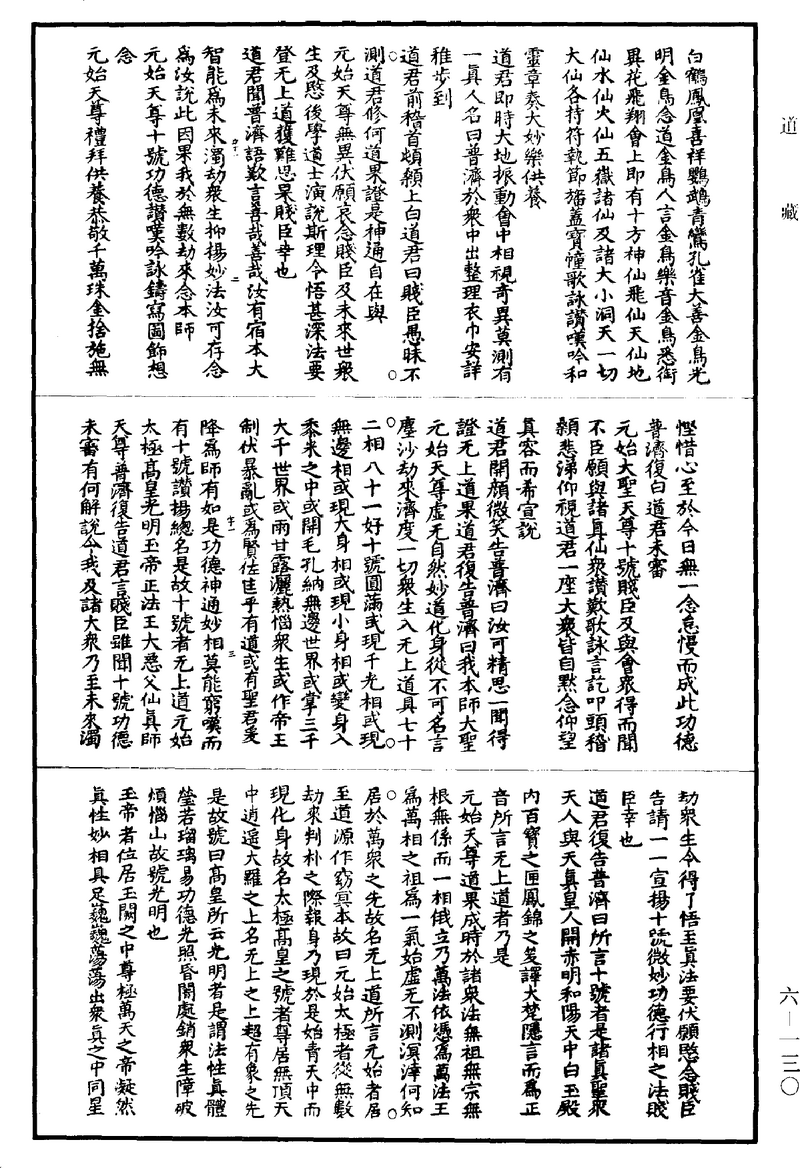 白鶴鳳凰喜祥鸚鵡青鸞孔雀大善金鳥光
明金鳥念道金鳥人言金鳥樂音金鳥悉銜
異花飛翔會上即有十方神仙飛仙天仙地
仙水仙火仙五嶽諸仙及諸大小洞天一切
大仙各持符執節旛蓋寶幢歌詠讚嘆吟和
靈章奏大妙樂供養
道君即時大地振動會中相視奇異莫測有
一真人名曰普濟於眾中出整理衣巾安詳
稚步到
道君前稽首頫顙上白道君曰賤臣愚昧不
測道君修何道果證是神通自在與
元始天尊無異伏願哀念賤臣及未來世眾
生及愍後學道士演說斯理令悟甚深法要
登无上道獲難思果賤臣幸也
道君聞普濟語歎言善哉善哉汝有宿本大
智能為未來濁劫眾生抑揚妙法汝可存念
為汝說此因果我於無數劫來念本師
元始天尊十號功德讚嘆吟詠鑄寫圖飾想
念
元始天尊禮拜供養恭敬千萬珠金捨施無
慳惜心至於今日無一念怠慢而成此功德
普濟復白道君未審
元始大聖天尊十號賤臣及與會眾得而聞
不臣願與諸真仙眾讚歎歌詠言訖叩頭稽
顙悲涕仰視道君一座大眾皆自默念仰望
真容而希宣說
道君開顏微笑告普濟曰汝可精思一聞得
證无上道果道君復告普濟曰我本師大聖
元始天尊虛无自然妙道化身從不可名言
塵沙劫來濟度一切眾生入无上道具七十
二相八十一好十號圓滿或現千光相或現
無邊相或現大身相或現小身相或變身入
黍米之中或開毛孔納無邊世界或掌三千
大千世界或雨甘露灑熱惱眾生或作帝王
制伏暴亂或為賢佐匡乎有道或有聖君爰
降為師有如是功德神通妙相莫能窮嘆而
有十號讚揚總名是故十號者无上道元始
太極高皇光明玉帝正法王大慈父仙真師
天尊普濟復告道君言賤臣雖聞十號功德
未審有何解說今我及諸大眾乃至未來濁
劫眾生令得了悟至真法要伏願愍念賤臣
告請一一宣揚十號微妙功德行相之法賤
臣幸也
道君復告普濟曰所言十號者是諸真聖眾
天人與天真皇人開赤明和陽天中白玉殿
內百寶之匣鳳錦之笈譯大梵隱言而為正
音所言无上道者乃是
元始天尊道果成時於諸眾法無祖無宗無
根無係而一相俄立乃萬法依憑為萬法王
為萬相之祖為一氣始虛无不測溟涬何知
居於萬眾之先故名无上道所言元始者居
至道源作窈冥本故曰元始太極者從無數
劫來判朴之際報身乃現於是始青天中而
現化身故名太極高皇之號者尊居無頂天
中逍遙大羅之上名无上之上超有象之先
是故號曰高皇所云光明者是謂法性真體
瑩若瑠璃易功德光照昏闇處銷眾生障破
煩惱山故號光明也
玉帝者位居玉闕之中尊極萬天之帝凝然
真性妙相具足巍巍蕩蕩出眾真之中同星
道藏
六－一三〇